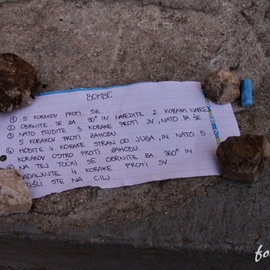 BOMBE
① 5 KORAKOV PROTI SZ.
② OBRNITE SE ZA 90° IN NAREDITE 2 KORAKA NAPREJ
③ NATO POJDITE 3 KORAKE PROTI JV, NATO PA ŠE
5 KORAKOV PROTI ZAHODU.
④ HODITE 4 KORAKE STRAN OD JUGA, IN NATO 5
KORAKOV OSTRO PROTI ZAHODU.
NA TEJ TOČKI SE OBRNITE ZA 360° IN
NADALJUJTE 4 KORAKE PROTI SV.
PRIŠLI STE NA CILJ
fo